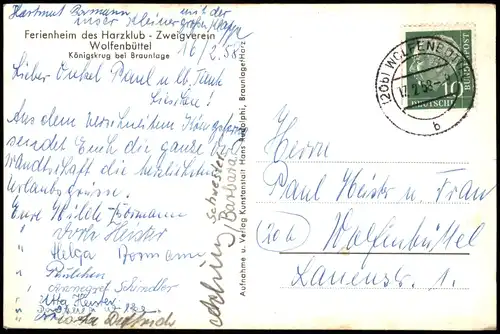 Hartmut Bormann mit der
unser kleiner großer
Ferienheim des Harzklub - Zweigverein
Wolfenbüttel
Königskrug bei Braunlage
16/2.58
Lieber Onkel Paul u. lb. Tante
Aus dem verschneiten
sendet Euch die ganze Ver-
wandtschaft die herzlichsten
Urlaubsgrüsse.
Eure
" Heister
" Helga Bormann
"
" Annegret Schindler
"
Schwester
(Barbara)
Aufnahme u. Verlag Kunstanstalt Hans Rudolphi, Braunlage/Harz
(20b) WOLFENBÜTTEL
17.2.58
b
10
DEUTSCHE BUNDESPOST
Herrn
Paul Heister u. Frau
(20b) Wolfenbüttel
Lauenstr. 1